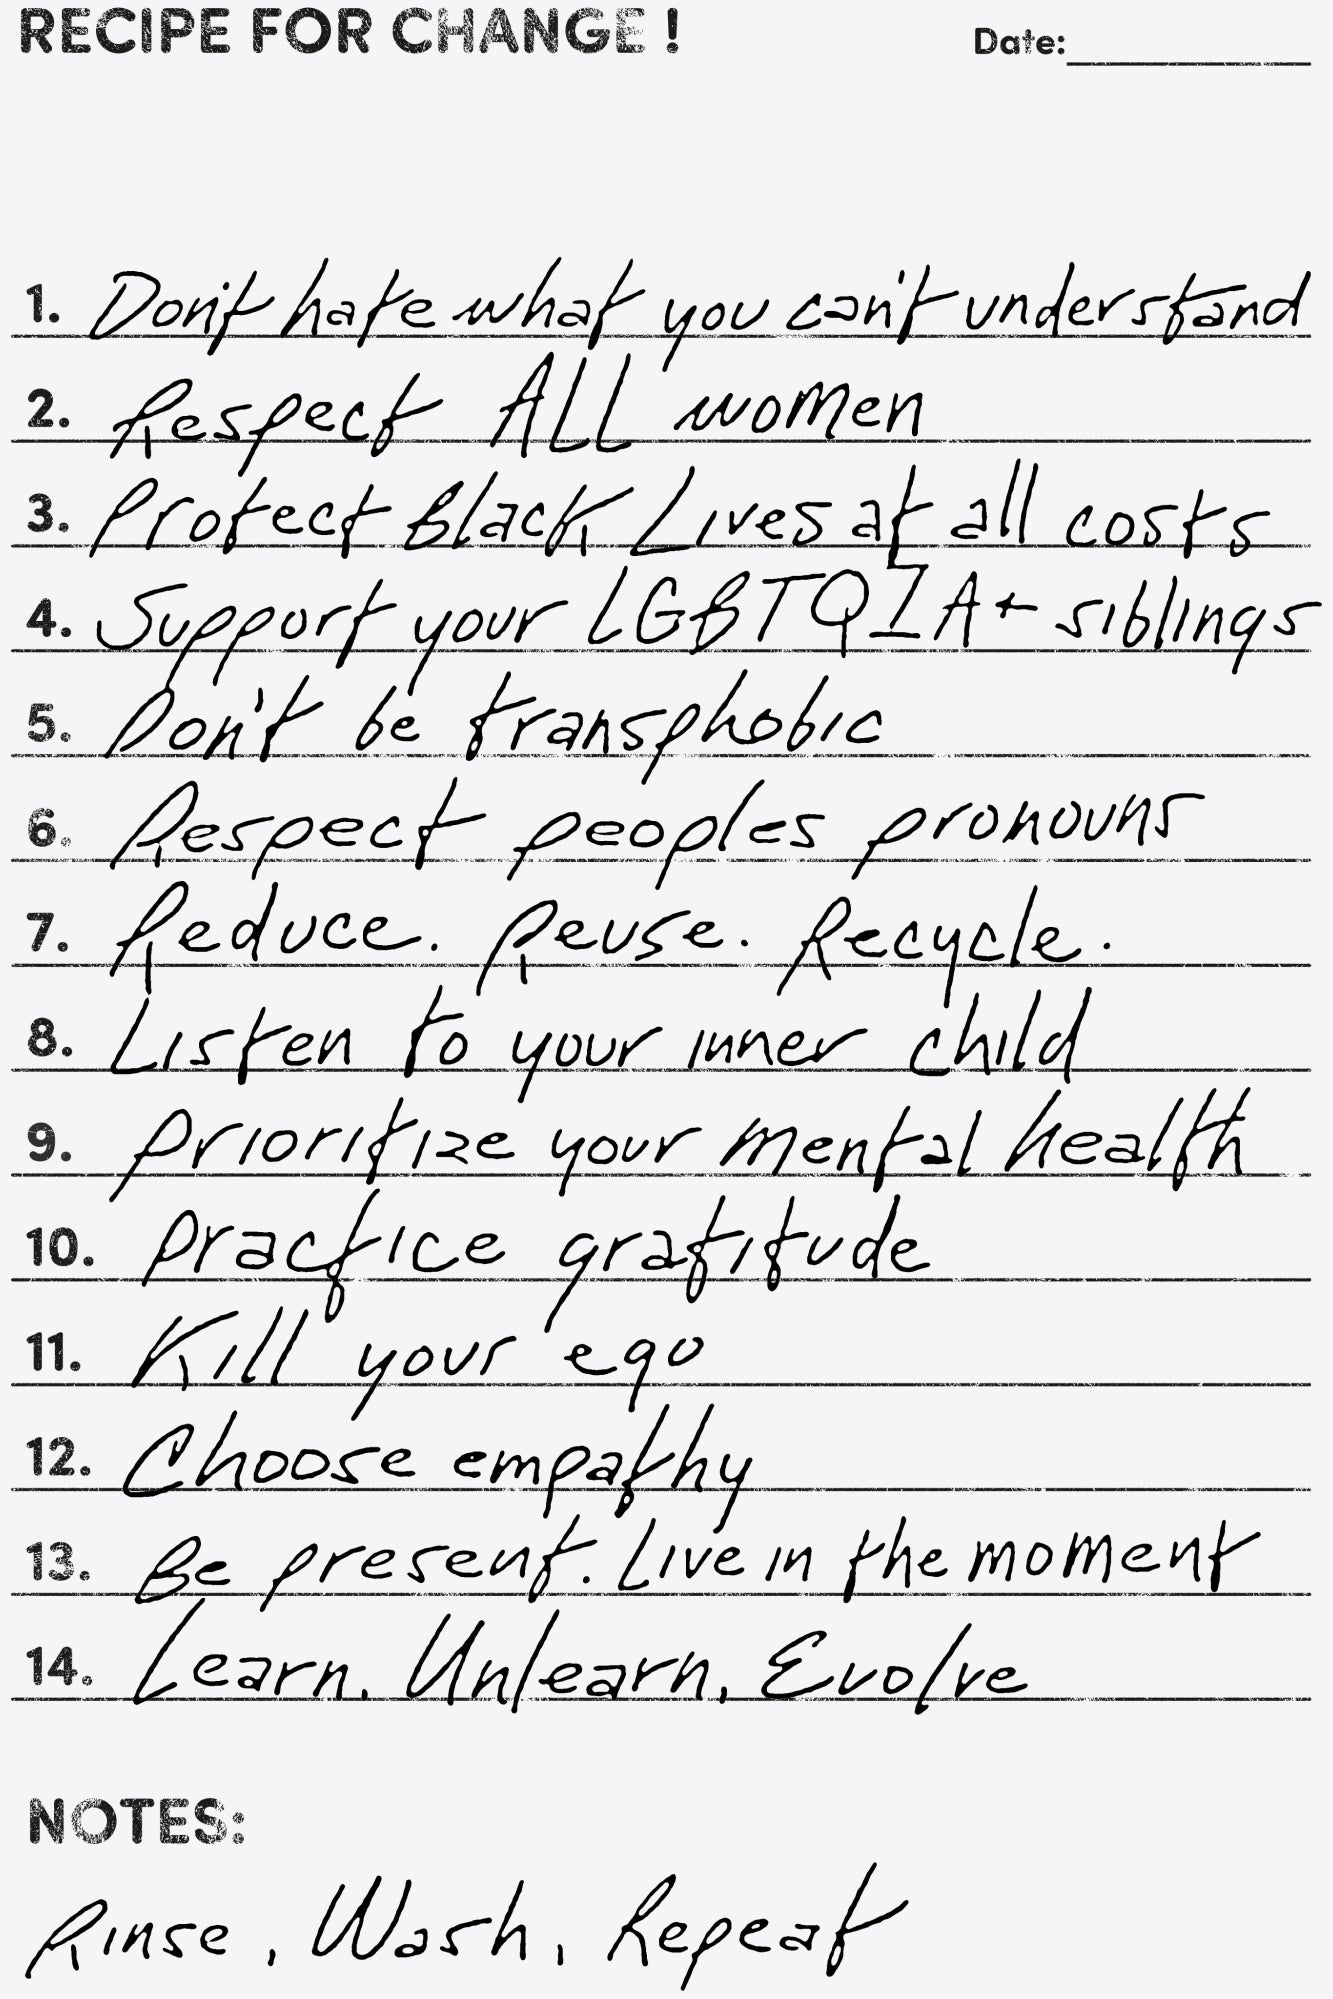 RECIPE FOR CHANGE !
Date:
1. Don't hate what you can't understand
2. Respect ALL women
3. Protect Black Lives at all costs
4. Support your LGBTQIA+ siblings
5. Don't be transphobic
6. Respect peoples pronouns
7. Reduce. Reuse. Recycle.
8. Listen to your inner child
9. Prioritize your mental health
10. Practice gratitude
11. Kill your ego
12. Choose empathy
13. Be present. Live in the moment
14. Learn, Unlearn, Evolve
NOTES:
Rinse, Wash, Repeat